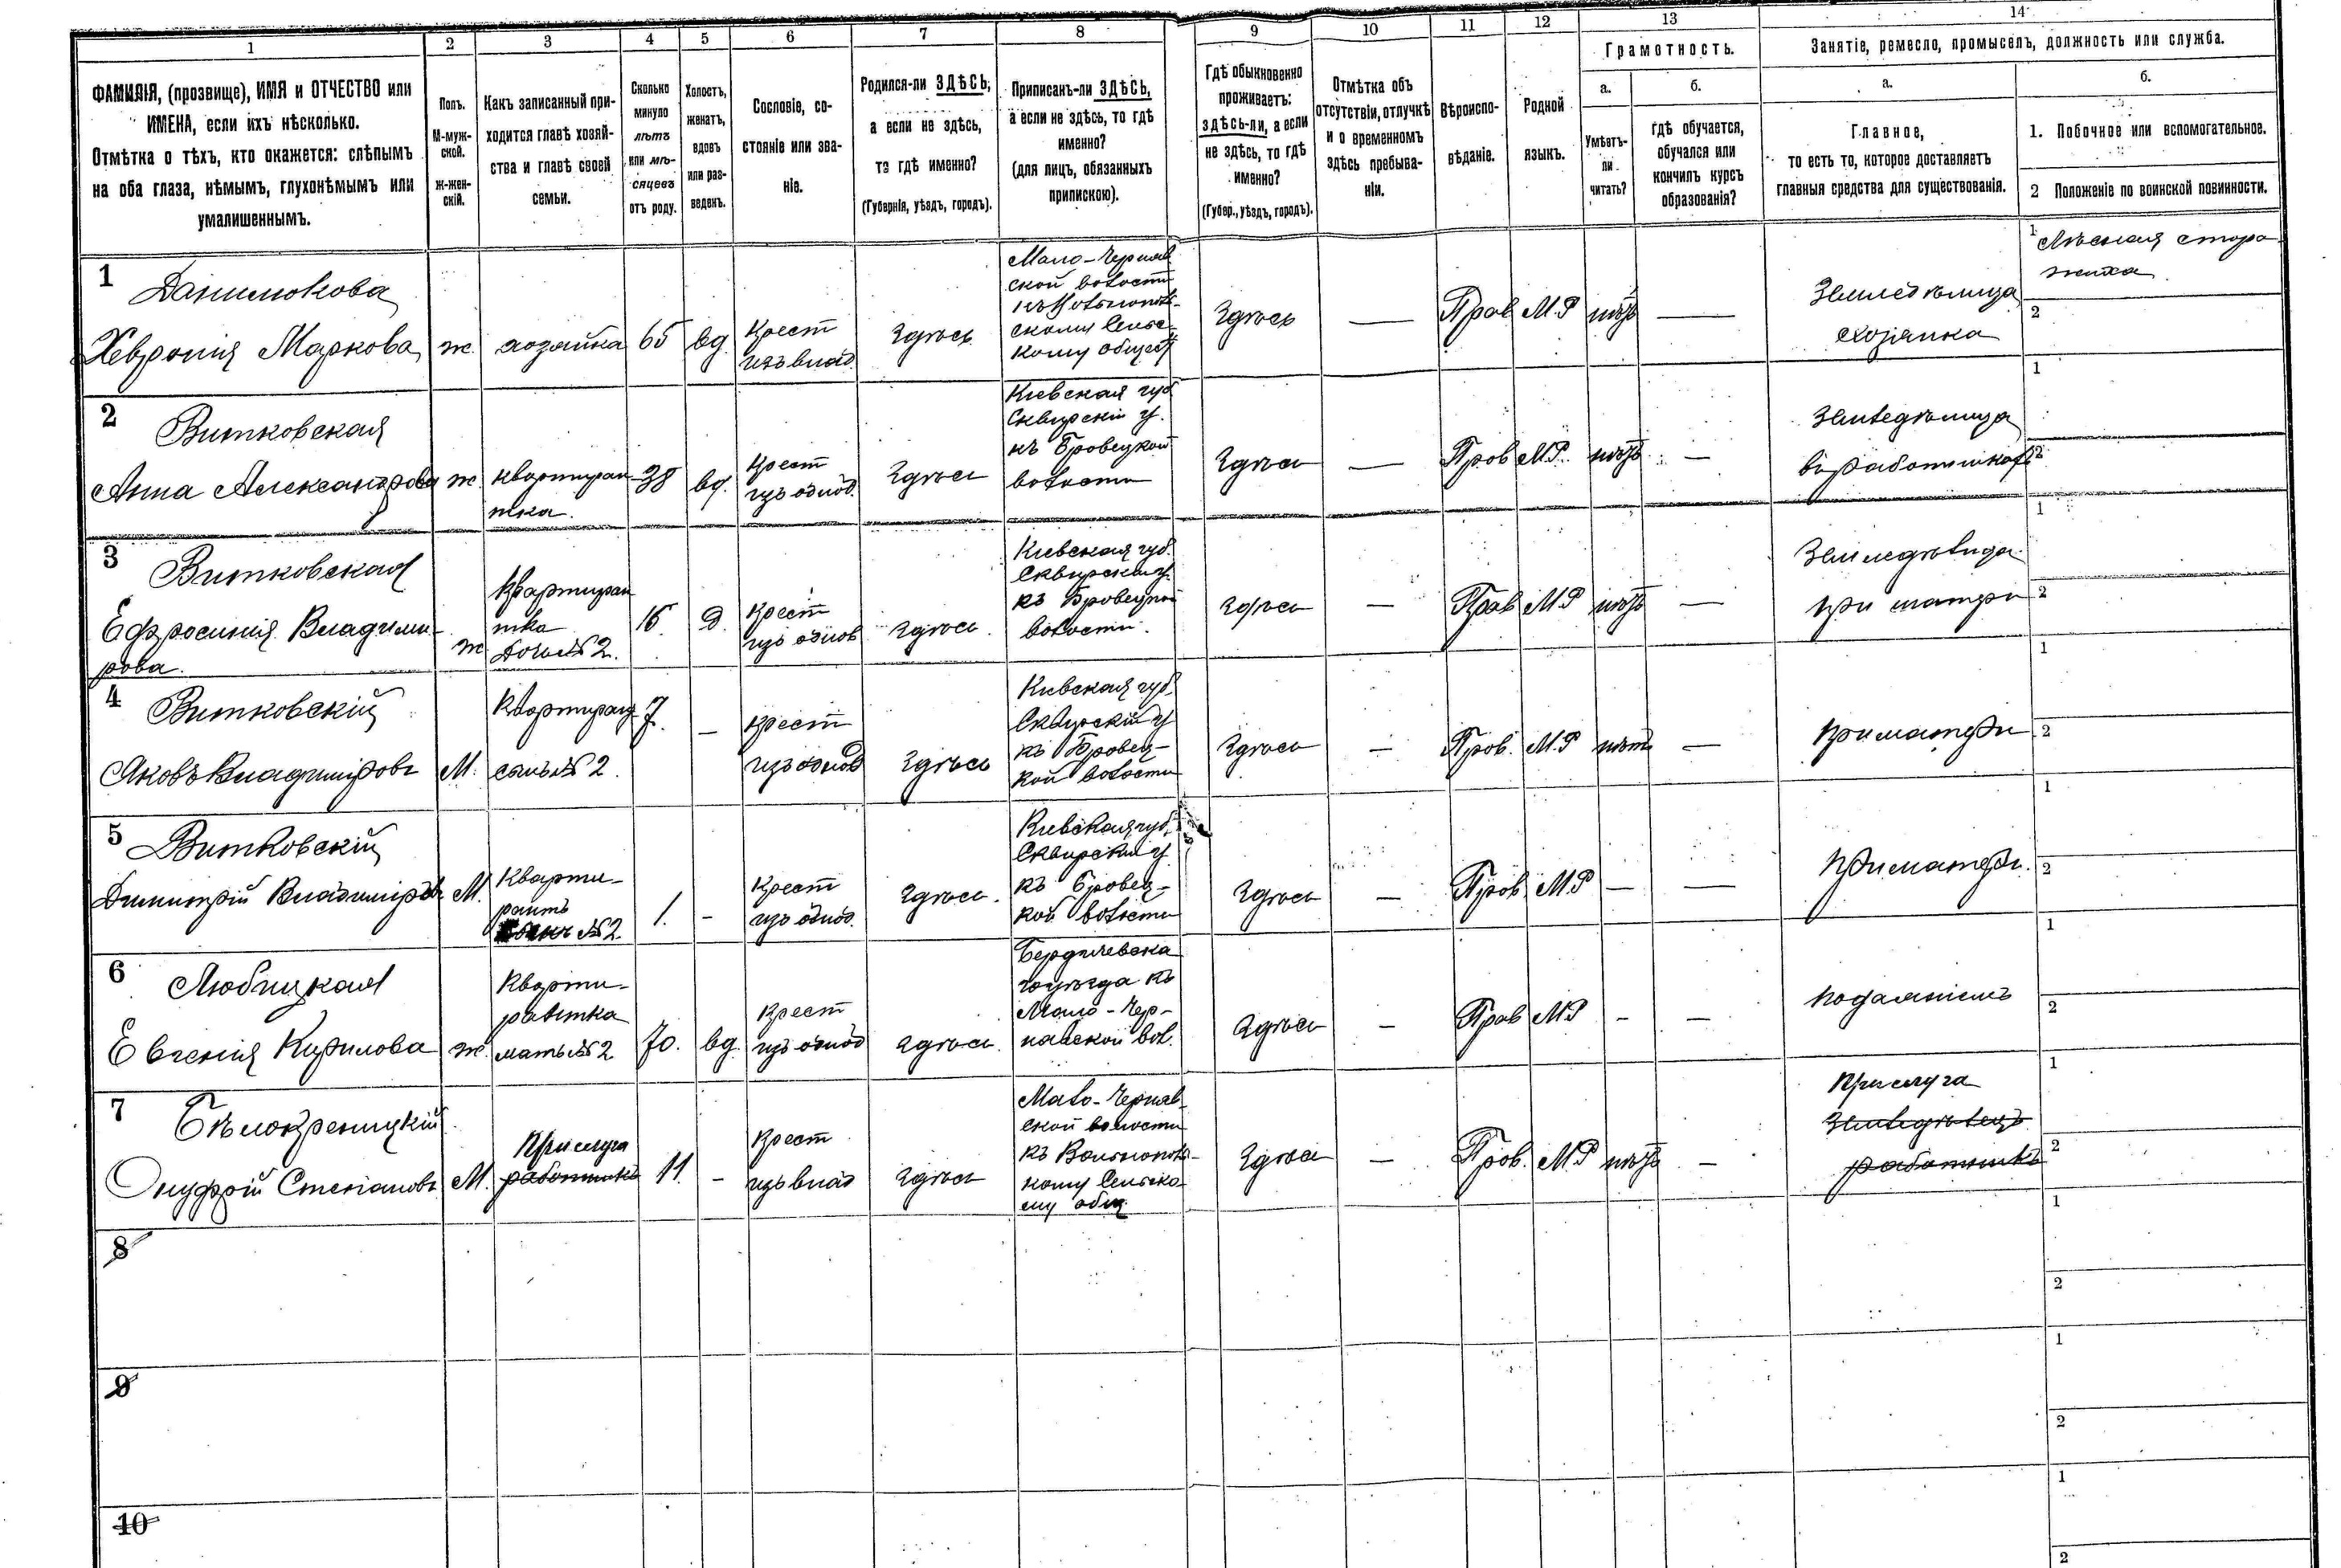 1 2 3 4 5 6 7 8 9 10 11 12 13 14
ФАМИЛІЯ, (прозвище), ИМЯ и ОТЧЕСТВО или
ИМЕНА, если ихъ нѣсколько.
Отмѣтка о тѣхъ, кто окажется: слѣпымъ
на оба глаза, нѣмымъ, глухонѣмымъ или
умалишеннымъ.
Полъ.
М-муж-
ской.
ж-жен-
скій.
Какъ записанный при-
ходится главѣ хозяй-
ства и главѣ своей
семьи.
Сколько
минуло
лѣтъ
или мѣ-
сяцевъ
отъ роду.
Холостъ,
женатъ,
вдовъ
или раз-
веденъ.
Сословіе, со-
стояніе или зва-
ніе.
Родился-ли ЗДѢСЬ,
а если не здѣсь,
то гдѣ именно?
(Губернія, уѣздъ, городъ).
Приписанъ-ли ЗДѢСЬ,
а если не здѣсь, то гдѣ
именно?
(для лицъ, обязанныхъ
припискою).
Гдѣ обыкновенно
проживаетъ:
здѣсь-ли, а если
не здѣсь, то гдѣ
именно?
(Губер., уѣздъ, городъ).
Отмѣтка объ
отсутствіи, отлучкѣ
и о временномъ
здѣсь пребыва-
ніи.
Вѣроиспо-
вѣданіе.
Родной
языкъ.
Грамотность.
а.
Умѣетъ-
ли
читать?
б.
гдѣ обучается,
обучался или
кончилъ курсъ
образованія?
Занятіе, ремесло, промыселъ, должность или служба.
а.
Главное,
то есть то, которое доставляетъ
главныя средства для существованія.
б.
1. Побочное или вспомогательное.
2 Положеніе по воинской повинности.
1
Данилюкова
Хевронія Маркова
ж.
хозяйка
65
вд.
Крест
изъ влад
Здѣсь
Мало-Черняв
ской волости
скому Сельс-
кому общест
Здѣсь
—
Прав
М.Р
нѣтъ
—
Земледѣлица
хозяйка
1 Лѣсная сторо
жиха
2
2
Витковская
Анна Александрова
ж.
квартиран-
тка.
38
вд.
Крест
изъ однод.
Здѣсь
Кіевская губ
Сквирскій у.
къ Бровецкой
волости
Здѣсь
—
Прав
М.Р.
нѣтъ
—
Земледѣлица
1
2
3
Витковская
Ефросинія Владими-
рова.
ж
Квартиран
тка
дочь № 2.
16
д.
Крест
изъ однод
здѣсь.
Кіевская губ.
Сквирскій у.
къ Бровецкой
волости.
здѣсь
—
Прав
М.Р
нѣтъ
—
Земледѣлица
при матери
1
2
4
Витковскій
Яковъ Владиміровъ
М.
Квартиран
сынъ № 2.
7.
—
Крест
изъ однод
Здѣсь
Кіевская губ.
Сквирскій у
къ Бровец-
кой волости
Здѣсь
—
Прав.
М.Р
нѣтъ
—
при матери
1
2
5
Витковскій
Димитрій Владиміровъ
М.
Кварти-
рантъ
сынъ № 2
1.
-
Крест
изъ однод.
Здѣсь.
Кіевская губ.
Сквирскій у
къ Бровец-
кой волости
Здѣсь
—
Прав
М.Р
—
—
при матери.
1
2
6
Любицкая
Евгенія Кирилова
ж.
Кварти-
рантка
мать № 2
70.
вд.
Крест
изъ однод
здѣсь.
Бердичевска
го уѣзда къ
Мало-Чер-
навской вол.
здѣсь
—
Прав
М.Р
-
—
подаяніемъ
1
2
7
Бѣлокреницкій
Онуфрій Степановъ
М.
Прислуга
работникъ
11.
-
Крест
изъ влад
Здѣсь
Мало-Черняв-
ской волости
кому Сельско-
му общ
Здѣсь
—
Прав.
М.Р
нѣтъ
—
Прислуга
Земледѣлецъ
работникъ
1
2
8
1
2
9
1
2
10
1
2